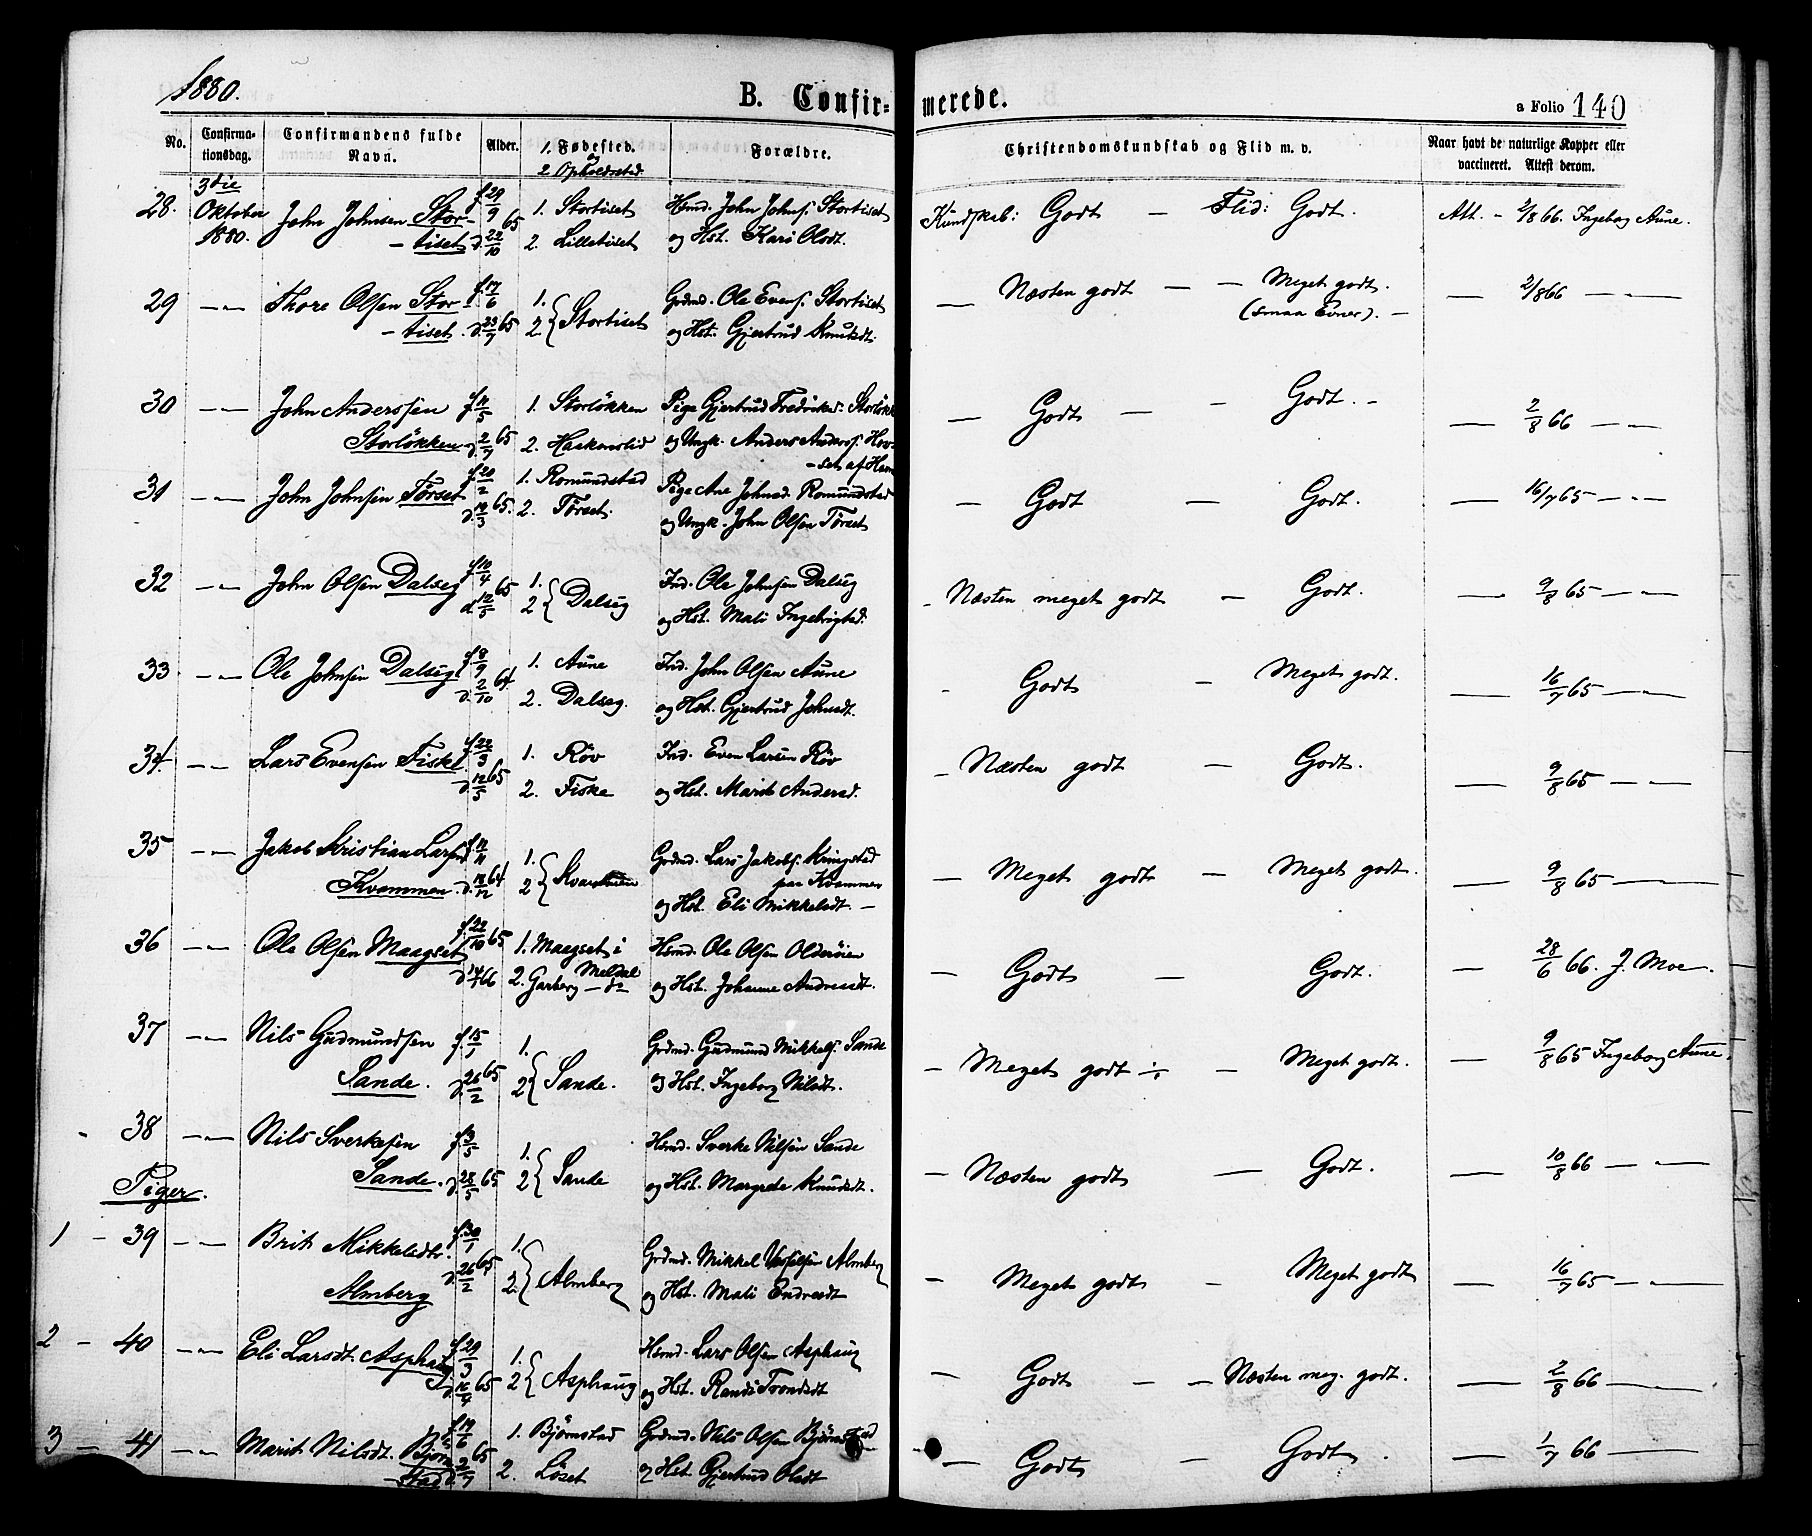 1880.
B. Confir-
merede.
a Folio 140
No.
Confirma-
tionsdag.
Confirmandens fulde
Navn.
Alder.
1. Fødested.
og
2 Opholdssted
Forældre.
Christendomskundskab og Flid m. v.
Naar havt de naturlige Kopper eller
vaccineret. Attest derom.
28. 3die Oktober 1880. John Johnsen Stor- f. 29/9 65 1. Stortiset Hsmd. John Johns. Stortiset Kundskab: Godt — Flid: Godt. Att. - 2/8 66. Ingeborg Aune.
- tiset d. 22/10 2. Lilletiset og Hst. Kari Olsdt.
29 —"— Thore Olsen Stor- f. 17/6 1. Grdmd. Ole Evens. Stortiset — Næsten godt — — Meget godt. — 2/8 66 —"—
- tiset. d. 23/7 65 2. { Stortiset og Hst. Gjertrud Knutsdt. (smaa Evner). -
30 —"— John Anderssen f. 11/5 1. Storløkken Pige Gjertrud Fredriksd. Storløkk — Godt — - Godt. - — 2/8 66 —"—
Storløkken d. 2/7 65 2. Haakenslid og Ungk. Anders Anders. Hov-
- set af
31 —"— John Johnsen Tørset f. 20/2 1. Romundstad Pige Ane Johnsd. Romundstad — Godt — Godt. — 16/7 65 —"—
d. 19/3 65. 2. Tørset. og Ungk. John Olsen Tørset
32 —"— John Olsen Dalseg f. 10/4 65 1. Ind. Ole Johnsen Dalseg - Næsten meget godt — Godt. — 9/8 65 —"—
d. 12/5 2 { Dalseg og Hst. Mali Ingebrigtsd.
33 —"— Ole Johnsen Dalseg f. 8/9 1. Aune Ind. John Olsen Aune - Godt - Meget godt. — 16/7 65 —"—
d. 2/10 64. 2. Dalseg. og Hst. Gjertrud Johnsdt.
34. —"— Lars Evensen Fiske f. 22/3 1. Røv Ind. Even Larsen Røv - Næsten godt — Godt. — 9/8 65 —"—
d. 12/5 65 2. Fiske og Hst. Marit Andersd.
35 —"— Jakob Kristian Larsen 1. Grdmd. Lars Jakobs. Kringstad — Meget godt — Meget godt. — 9/8 65 —
Kvammen. 64 2 { paa Kvammen
og Hst. Eli Mikkelsdt. —
36 —"— Ole Olsen Maagset f. 22/10 65 1. Maagset i Hsmd. Ole Olsen Olderøien — Godt — Godt. — 28/6 66. J. Moe.
66 2. Garberg Meldal — do og Hst. Johanne Andersdt.
37 —"— Nils Gudmundsen f. 15/1 1. Grdmd. Gudmund Mikkels. Sande - Meget godt - Meget godt. — 9/8 65 Ingeborg Aune.
Sande. d. 26/2 65 2 { Sande. og Hst. Ingeborg Nilsdt.
38 —"— Nils Sverkesen f. 3/5 1. Hsmd. Sverke Nilsen Sande — Næsten godt — Godt. — 10/8 66 —"—
Sande. d. 28/5 65 2 { Sande og Hst. Margrete Knudsdt.
Piger.
1 - 39 —"— Brit Mikkelsdtr. f. 30/1 1. Grdmd. Mikkel Almberg — Meget godt — Meget godt — 16/7 65 —"—
Almberg d. 26/2 65 2. { Almberg og Hst. Mali Endresdt
2 - 40 —"— Eli Larsdt. Asphaug f. 29/3 1. Hsmd. Lars Olsen Asphaug — Godt — - Næsten meg. godt. — 2/8 66 —"—
d. 16/4 65 2 { Asphaug og Hst. Randi Trondsdt
3 - 41 —"— Marit Nilsdt. Bjørn- f. 19/6 1. Bjørnstad Grdmd. Nils Olsen Bjørnstad — Godt — Godt. — 1/7 66 —
stad d. 2/7 65 2. Løset og Hst. Gjertrud Olsdt